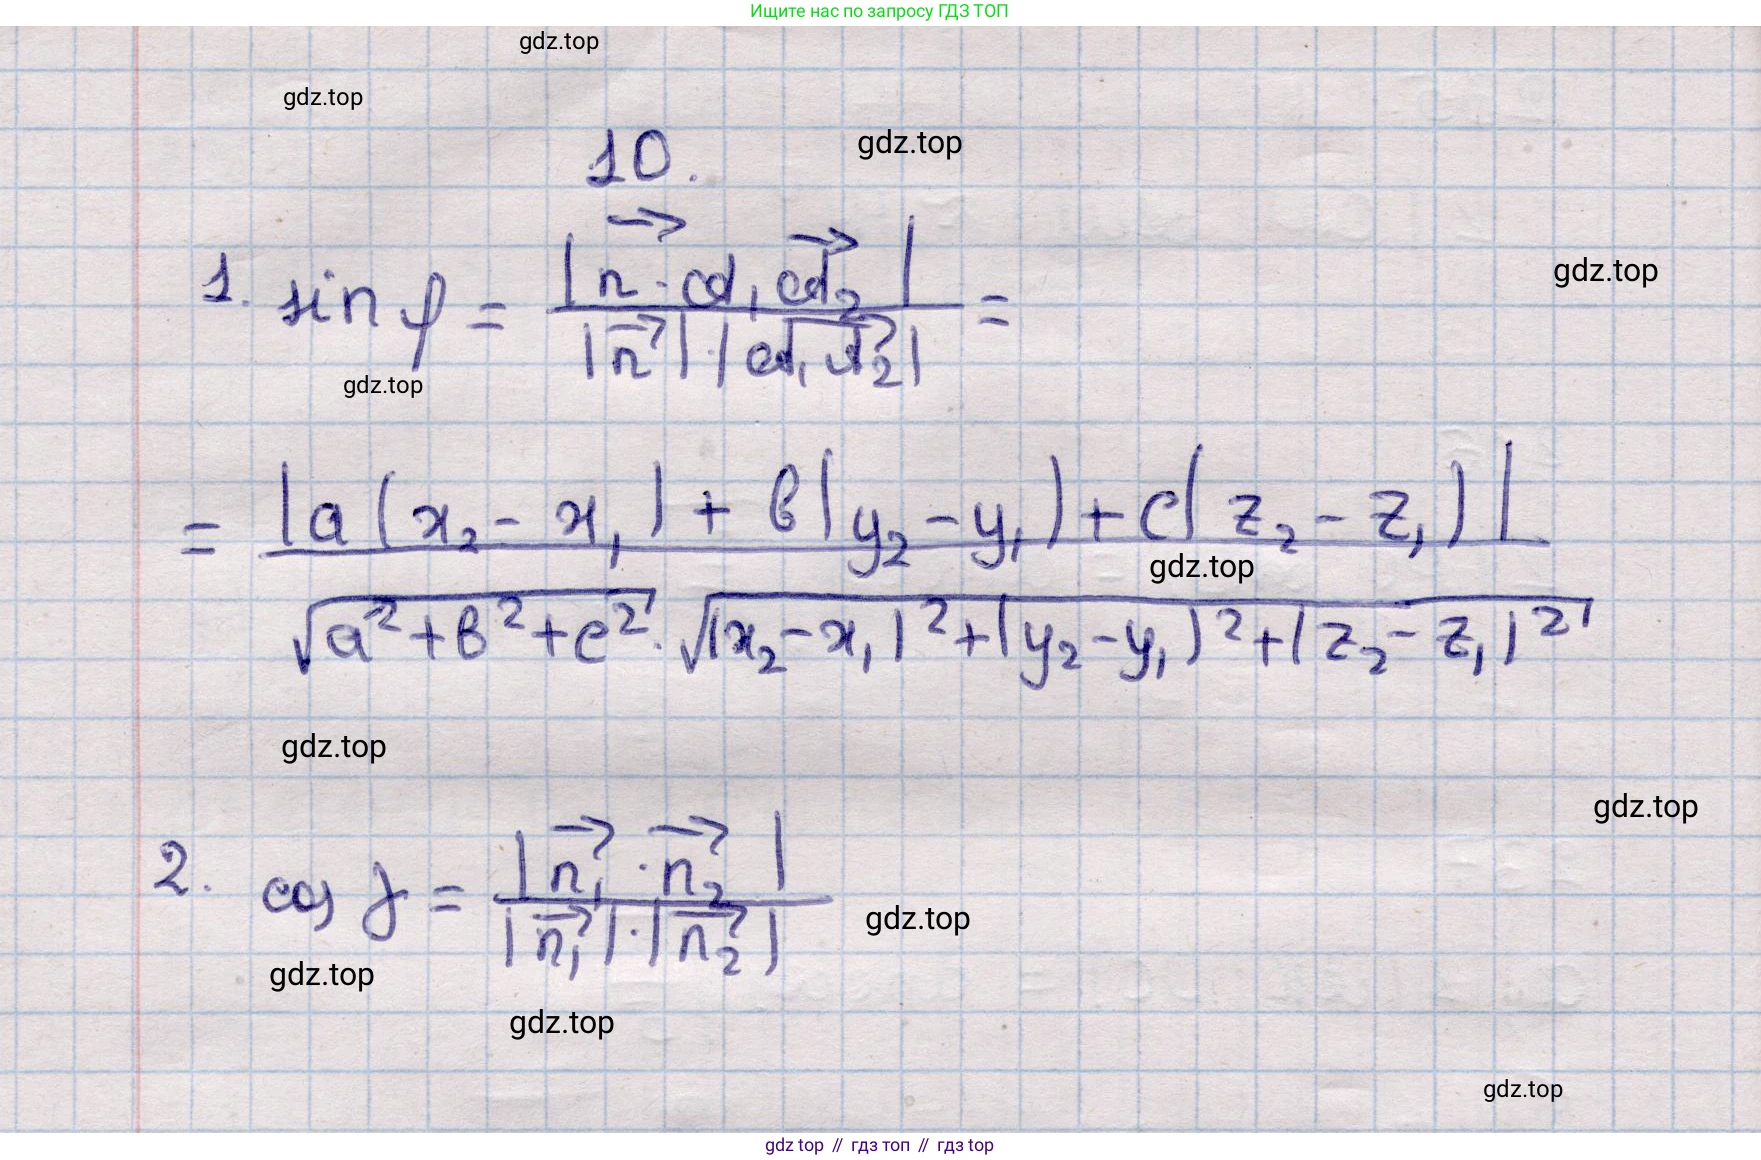 Ищите нас по запросу ГДЗ ТОП
gdz.top
gdz.top
10.
gdz.top
1. sin φ = |n⃗ · cd₁cd₂⃗| / |n⃗| · |cd₁cd₂⃗| =
gdz.top
gdz.top
= |a(x₂ - x₁) + b(y₂ - y₁) + c(z₂ - z₁)| / √a² + b² + c² · √(x₂ - x₁)² + (y₂ - y₁)² + (z₂ - z₁)²
gdz.top
gdz.top
gdz.top
2. cos γ = |n₁⃗ · n₂⃗| / |n₁⃗| · |n₂⃗|
gdz.top
gdz.top
gdz.top
gdz.top
gdz top // гдз топ // гдз top